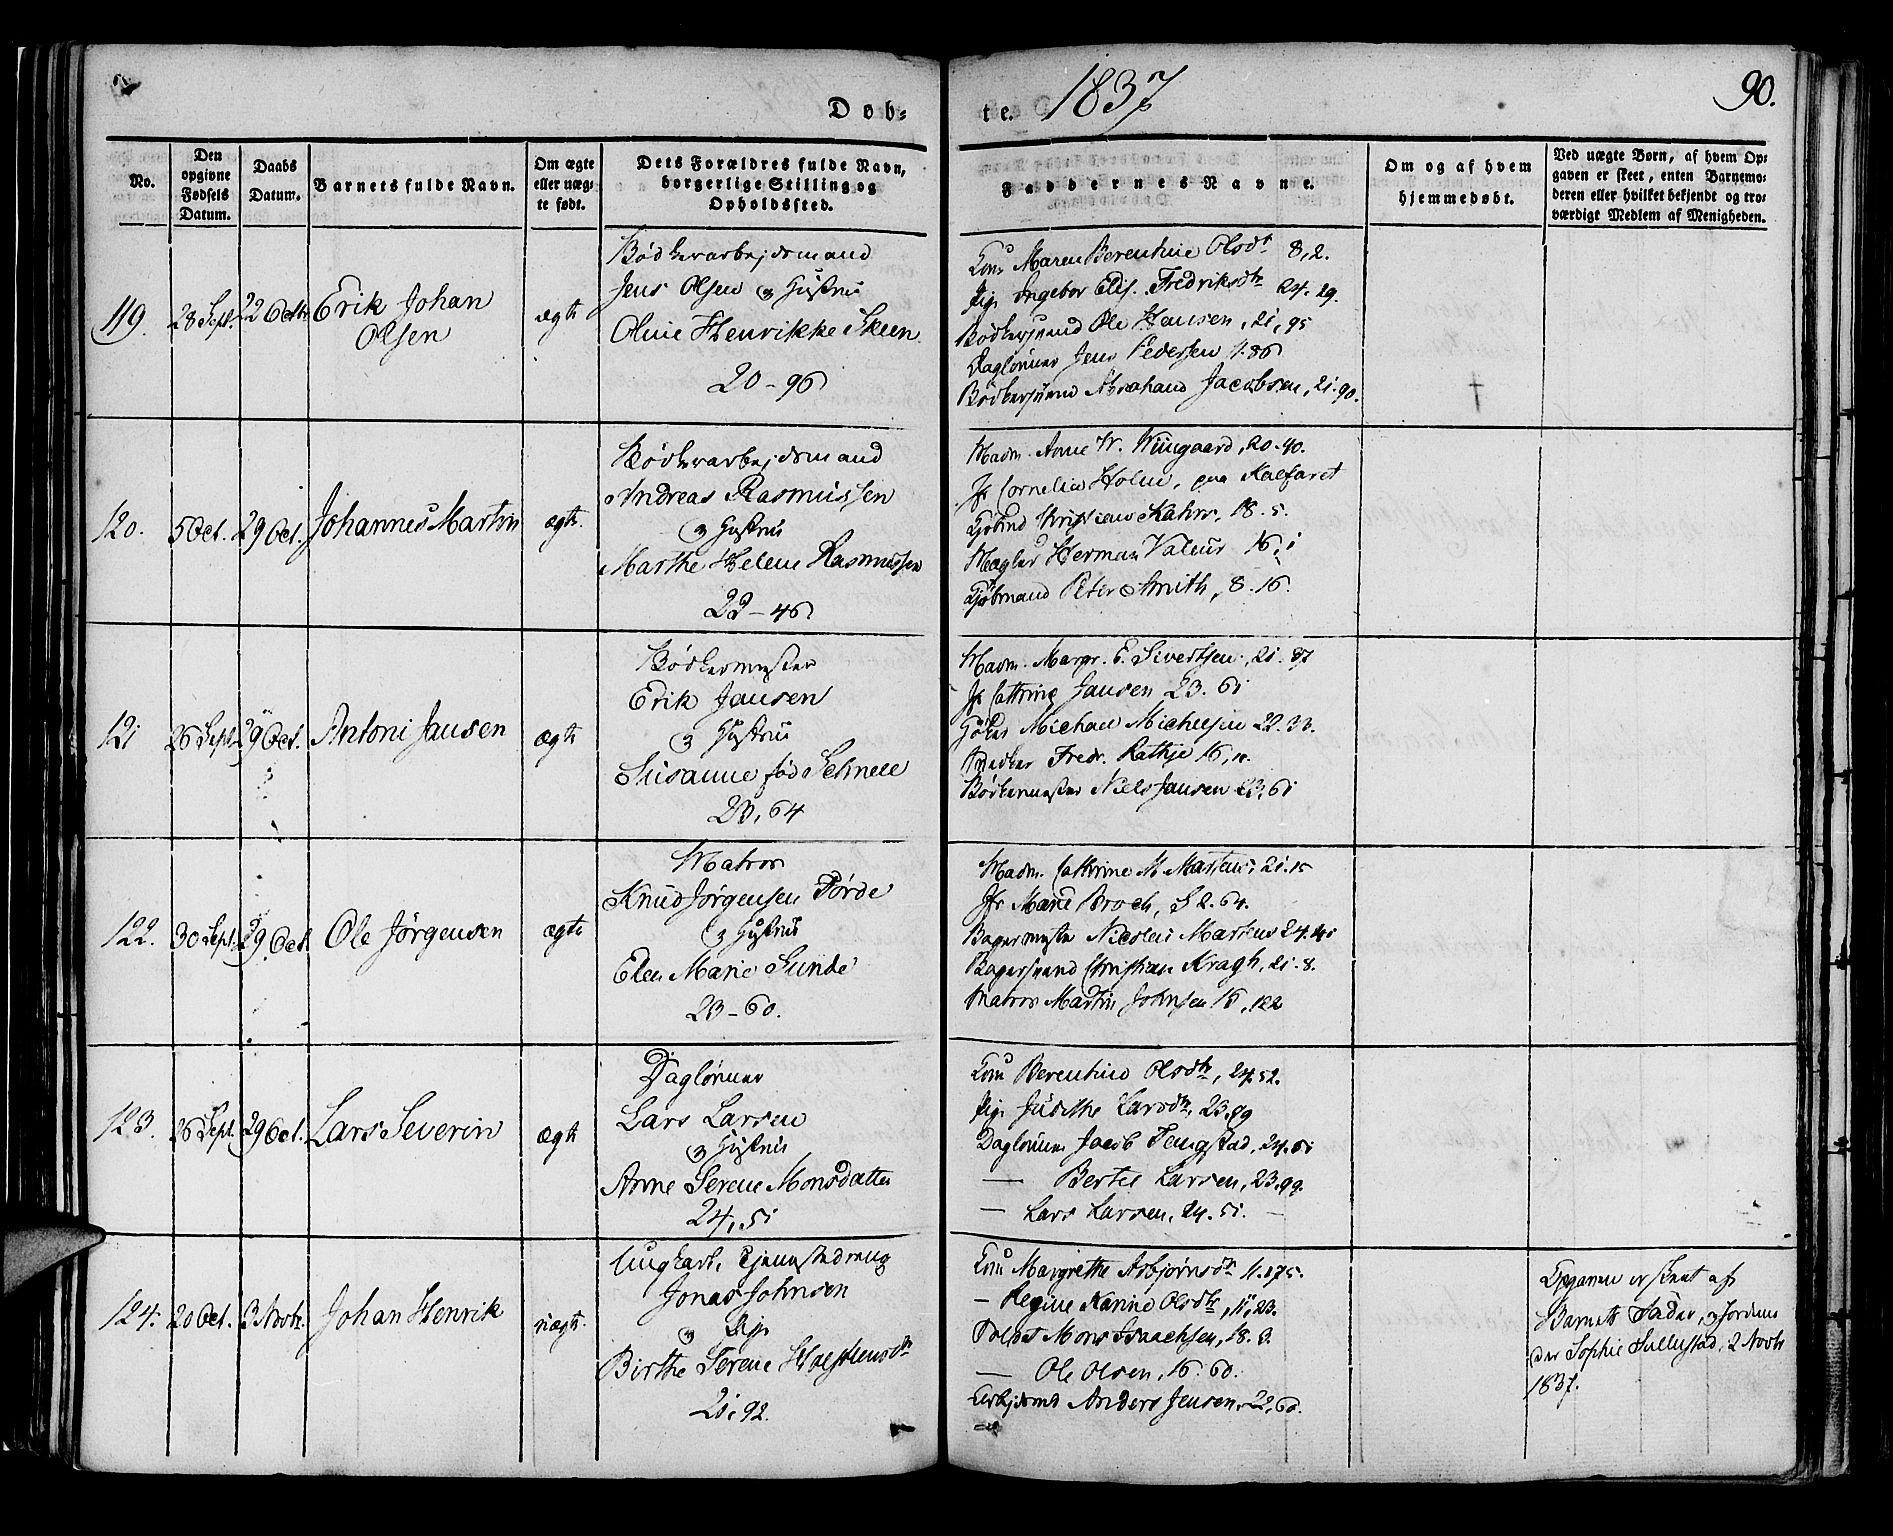 Døb=
te. 1837
90.
No.
Den opgivne Fødsels Datum.
Daabs Datum.
Barnets fulde Navn.
Om ægte eller uæg- te født.
Dets Forældres fulde Navn, borgerlige Stilling og Opholdssted.
Faddernes Navne.
Om og af hvem hjemmedøbt.
Ved uægte Børn, af hvem Op- gaven er skeet, enten Barnemo- deren eller hvilket bekjendt og tro- værdigt Medlem af Menigheden.
119. 28 Sept. 22 Octr. Erik Johan
Olsen
ægte
Bødkerarbejdsmand
Jens Olsen og Hustrue
Oline Henrikke Skeen
20-96
Kone Maren Berentine Olsdr 8,2.
Pige Ingebor Elis. Fredriksdtr 24.29.
Bødkersvend Ole Hansen, 21,95
Daglønner Jens Pedersen 1.86
Bødkersvend Abraham Jacobsen, 21.90.
120. 5 Oct. 29 Oct. Johannes Martin ægte.
Bødkerarbejdsmand
Andreas Rasmussen
og Hustrue
Marthe Helene Rasmussen
22-46
Madm. Anne W. Wiingaard, 20.40.
Jfr Cornelia Holm, paa Kalfaret
Kjøbmd Kahrs, 18.5.
Mægler Herman Valeur 16,1
Kjøbmand Peter Smith, 8.16.
121 26 Sept. 29 Oct. Antoni Jansen ægte
Bødkermester
Erik Jansen
og Hustrue
Susanne fød Schnell
23,64
Madm. Margr. E. Sivertsen, 21.87
Jfr Cathrine Jansen 23.61
Michael Michelsen 22.33.
Fredr. Rathje 16,
Bødkermester Niels Jansen 23,61
122. 30 Sept. 29 Oct. Ole Jørgensen ægte
Matros
Knud Jørgensen Førde
og Hustrue
Elen Marie Sunde
23-60.
Madm. Cathrine M. Martens, 21.15
Jfr Marie Broch, 22.64.
Bagermester Nicolai Martens 24.
Bagersvend Christian Kragh, 21.8.
Matros Martin Johnsen 16, 122
123. 26 Sept. 29 Oct. Lars Severin ægte
Daglønner
Lars Larsen
og Hustrue
Anne Serene Monsdatter
24,51
Kone Berentine Olsdtr, 24.52.
Pige Judithe Larsdtr, 23.99
Daglønner Jacob Tengstad, 24.51
— Bertel Larsen, 23.99.
— Lars Larsen, 24.51. —
124. 20 Oct. 3 Novbr. Johan Henrik uægte.
Ungkarl, Tjenestedreng
Jonas Johnsen
og Pige
Birthe Serene
21,92.
Kone Margrethe Asbjørnsdr 11.175.
— Regine Karine Olsdtr, 11,23.
Mons Isaachsen, 18.3.
— Ole Olsen, 16.60.
Arbejdsmd Anders Jensen, 22,60.
Opgaven er skeet af
Barnets Fader, og Jordemo
der Sophie Sellestad, 2 Novbr
1837.